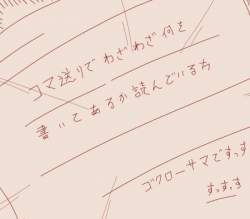 コマ送りでわざわざ何を
書いてあるか読んでいる方
ゴクローサマですっす
すっすっす